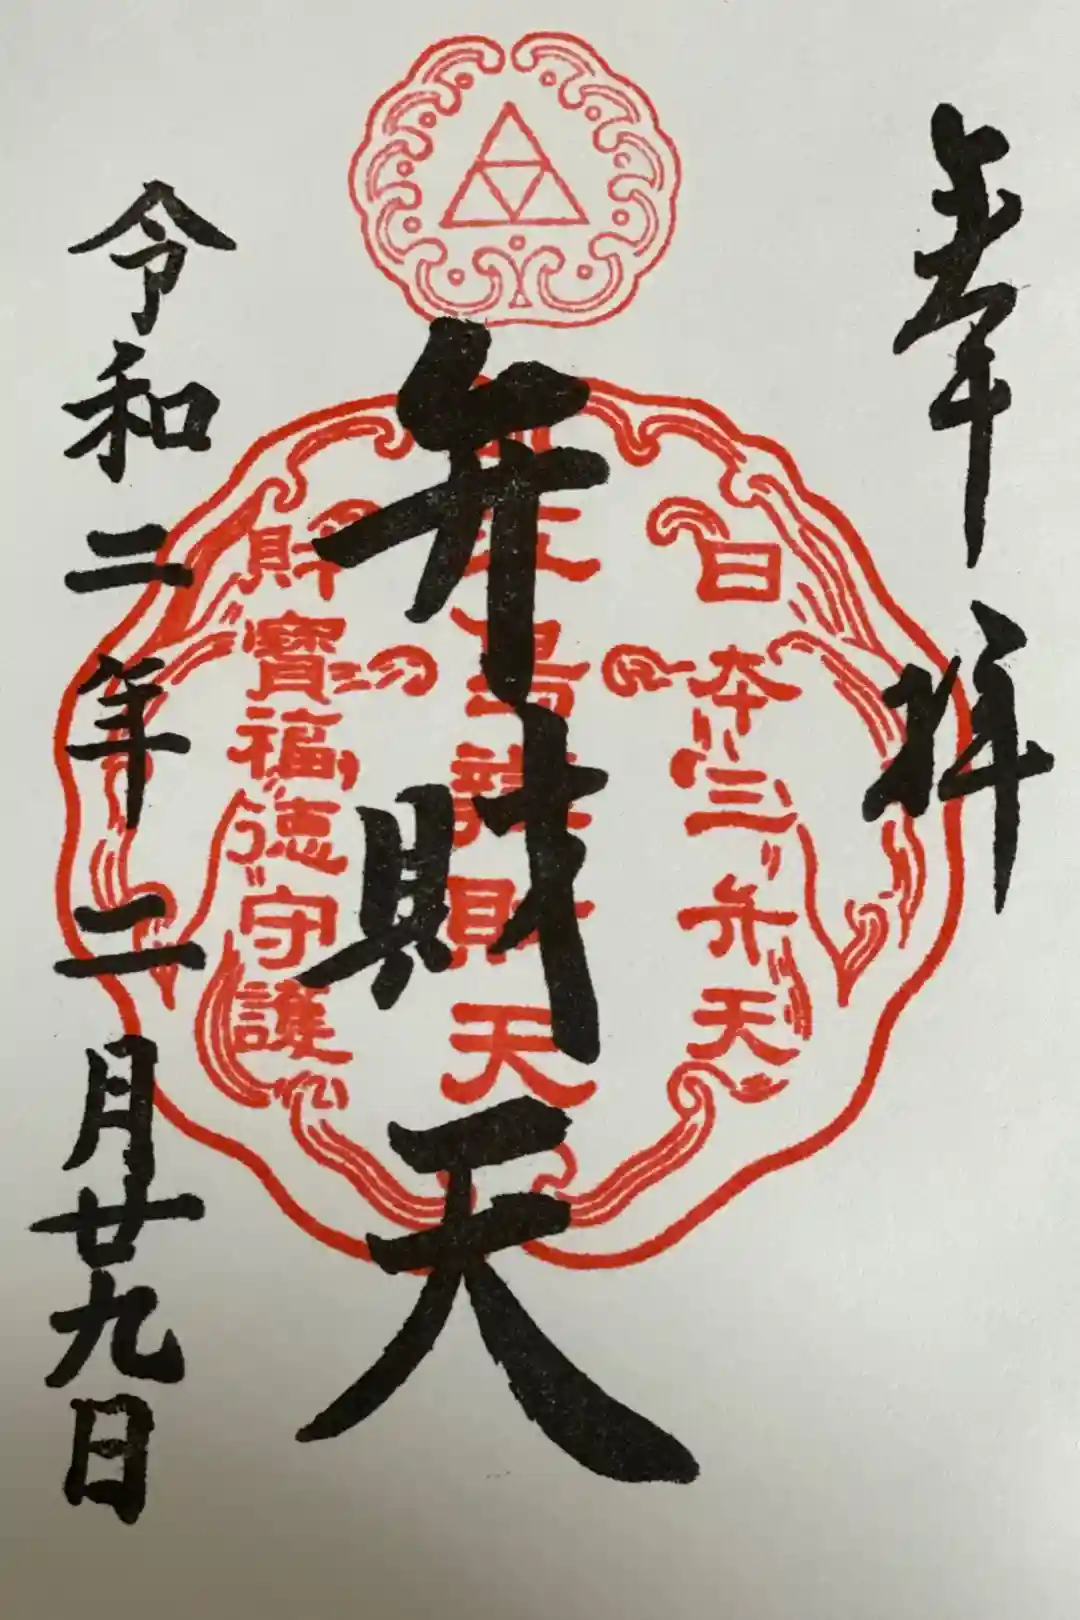 奉拝
日本三弁天
弁財天
島財天
財寶福徳守護
令和二年二月廿九日